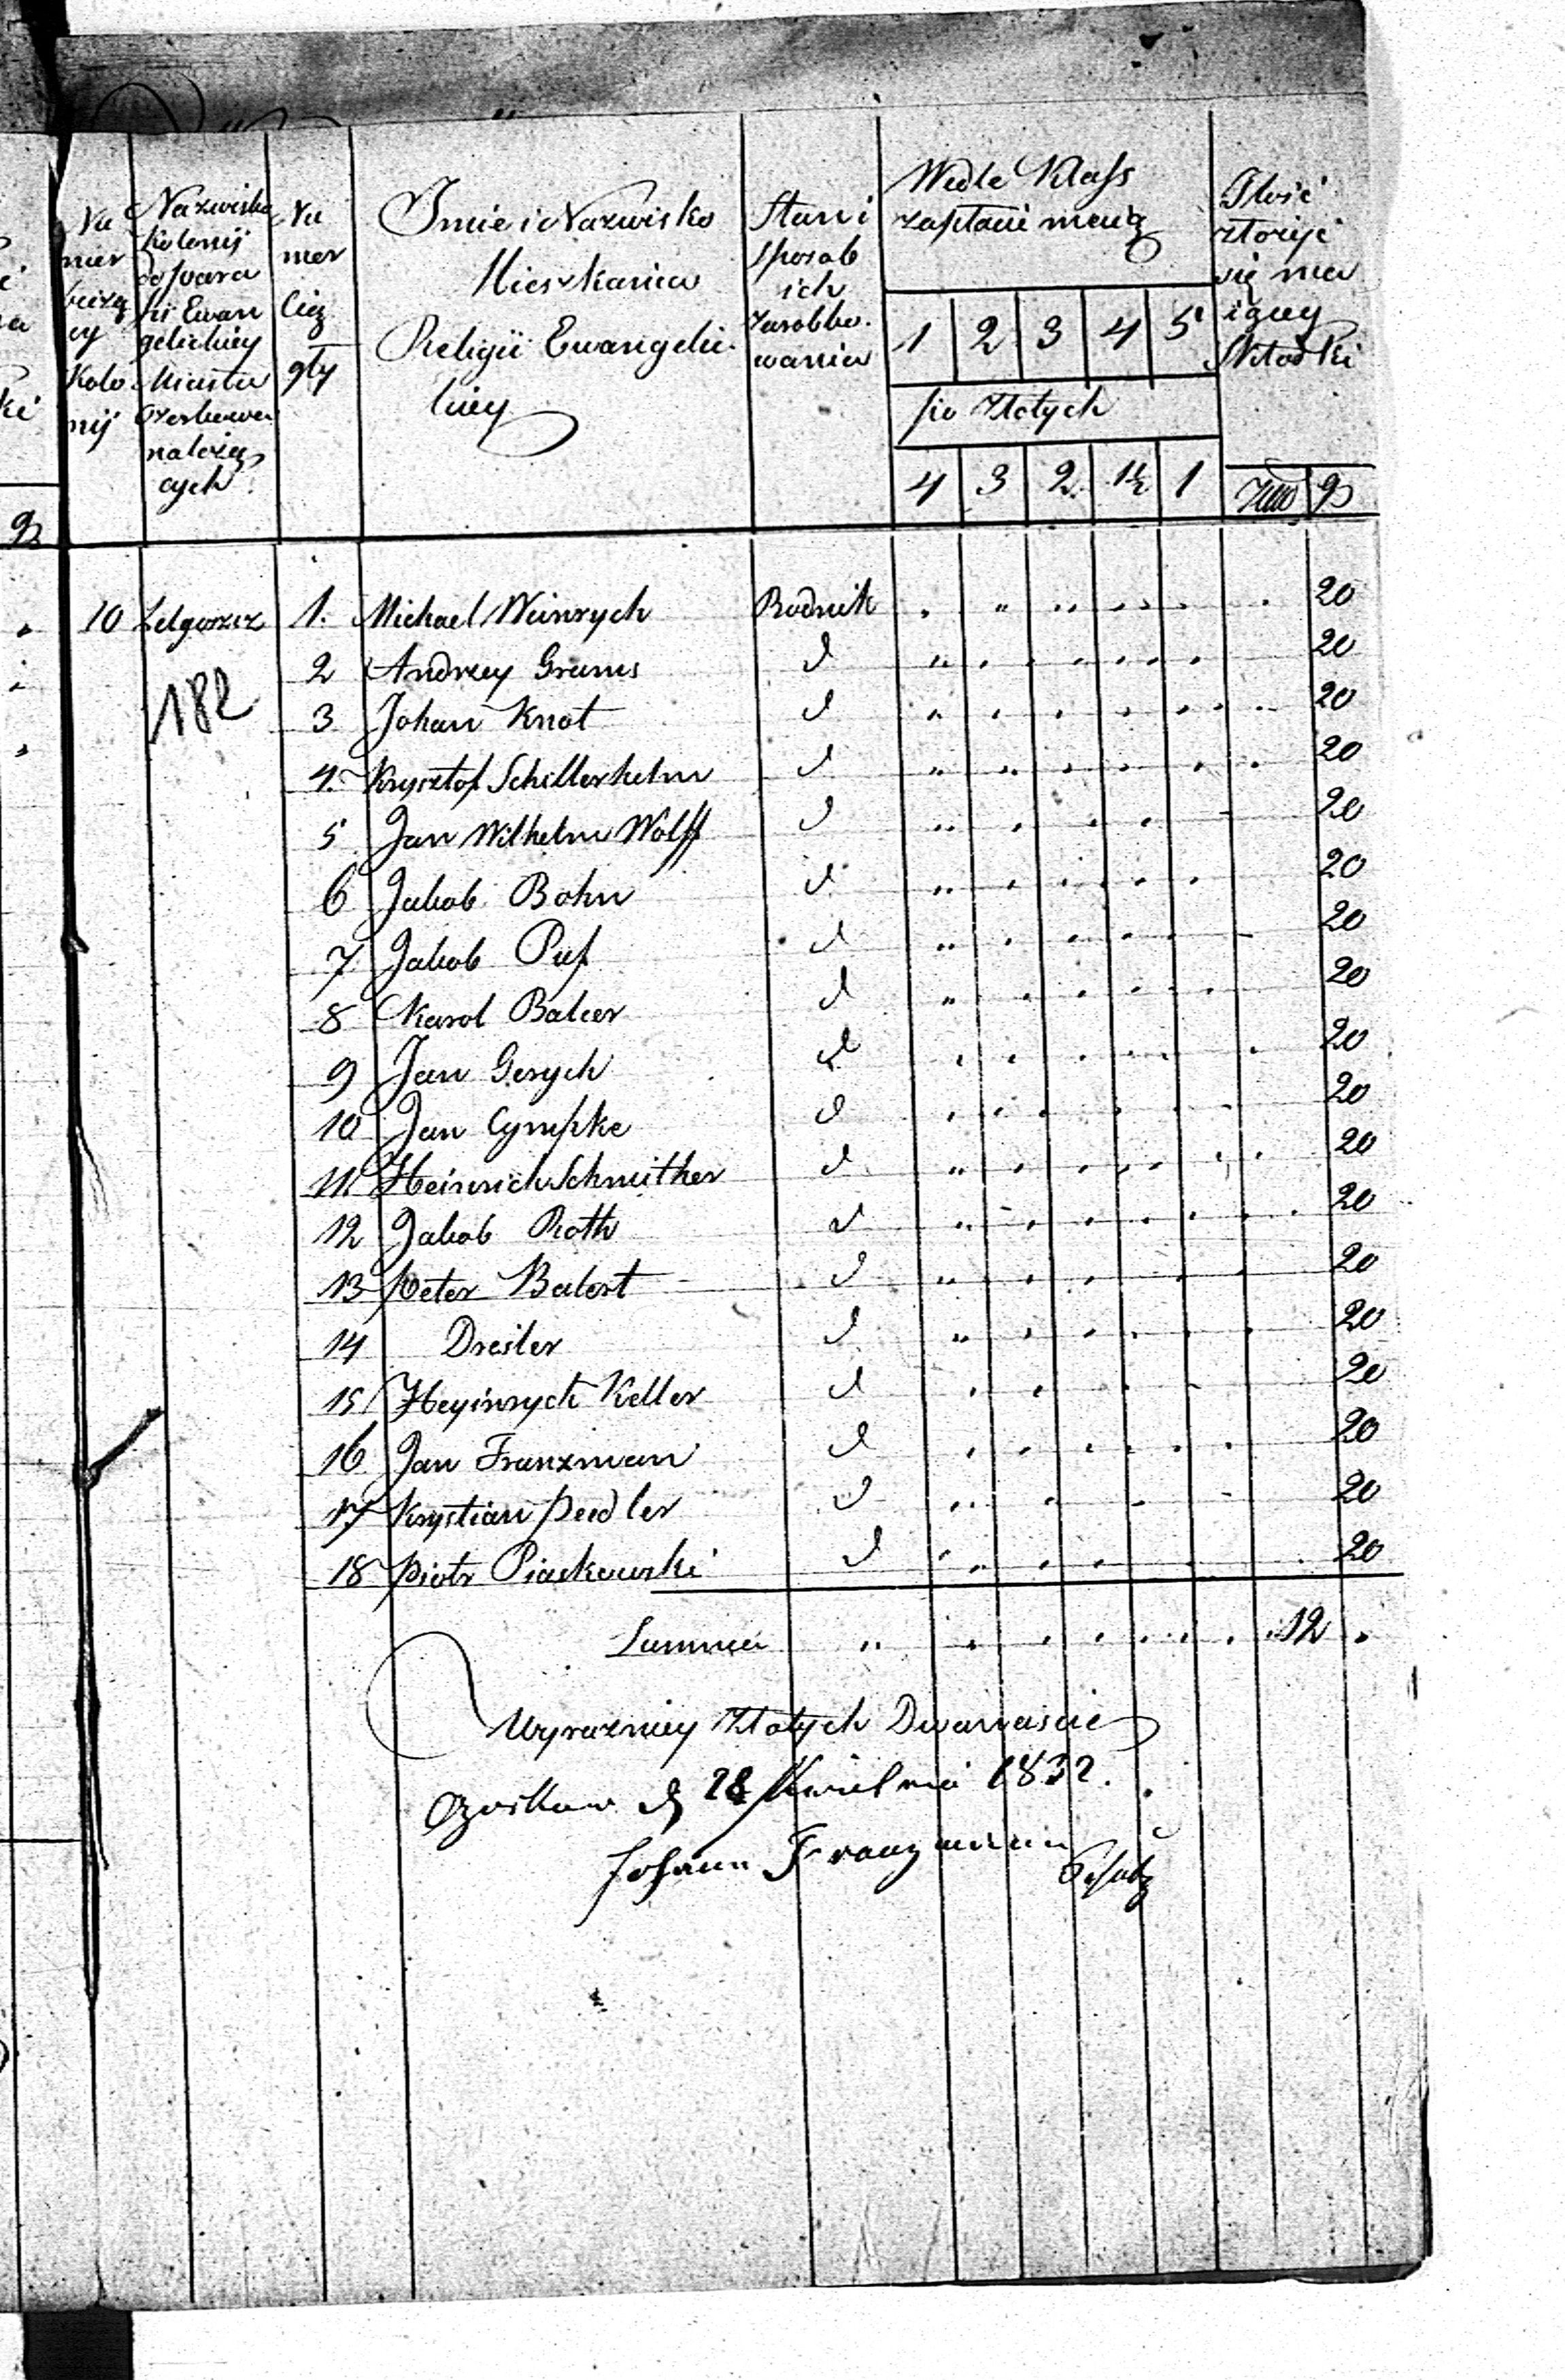 Nu
mer
bieżą
cy
Kolo
nij
Nazwiska
kolonij
do para
fii Ewan
gelickiey
Miasta
Ozorkowa
należą
cych
Nu
mer
Cią
gły
Imie i Nazwisko
Mieszkańca
Religii Ewangelic
kiey
Stan i
sposob
ich
zarobko
wania
Wedle Klass
zapłacić mają
1 2 3 4 5
po złotych
4 3 2 1½ 1
Ilość
złożyć
się ma
iącey
Składki
Złto gr
10 Lelgoszcz 1. Michael Weinrych Rodnik 20
182
2 Andrzey Grams d 20
3 Johan Knot d 20
4. Krysztof Schillerhelm d 20
5 Jan Wilhelm Wolff d 20
6 Jakob Bohn d 20
7 Jakob Puf d 20
8 Karol Balcer d 20
9 Jan Gerych d 20
10 Jan Cympke d 20
11 Heinrich Schmither d 20
12 Jakob Roth d 20
13 Peter Balert d 20
14 Dreiler d 20
15 Heyinrych Keller d 20
16 Jan Franzman d 20
17 Krystian Peedler d 20
18 Piotr Piaskowski d 20
Summa 12
Wyrazniey Złotych Dwanascie
Ozorkow d 28 Kwietnia 1832.
Johann Franzmann